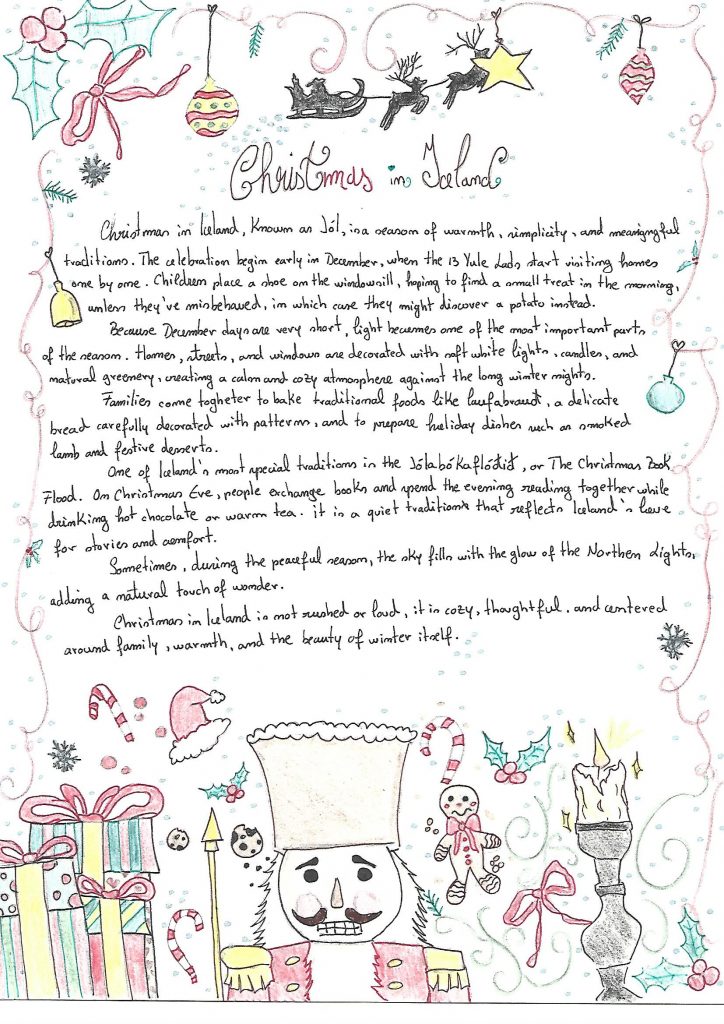 Christmas in Iceland
Christmas in Iceland, Known as Jól, is a season of warmth, simplicity, and meaningful
traditions. The celebration begin early in December, when the 13 Yule Lads start visiting homes
one by one. Children place a shoe on the windowsill, hoping to find a small treat in the morning,
unless they've misbehaved, in which case they might discover a potato instead.
Because December days are very short, light becomes one of the most important parts
of the season. Homes, streets, and windows are decorated with soft white lights, candles, and
natural greenery, creating a calm and cozy atmosphere against the long winter nights.
Families come togheter to bake traditional foods like laufabraudt, a delicate
bread carefully decorated with patterns, and to prepare holiday dishes such as smoked
lamb and festive desserts.
One of Iceland's most special traditions is the Jólabókaflóðið, or The Christmas Book
Flood. On Christmas Eve, people exchange books and spend the evening reading together while
drinking hot chocolate or warm tea. it is a quiet tradition that reflects Iceland's love
for stories and comfort.
Sometimes, during the peaceful season, the sky fills with the glow of the Northen Lights,
adding a natural touch of wonder.
Christmas in Iceland is not rushed or loud, it is cozy, thoughtful. and centered
around family, warmth, and the beauty of winter itself.